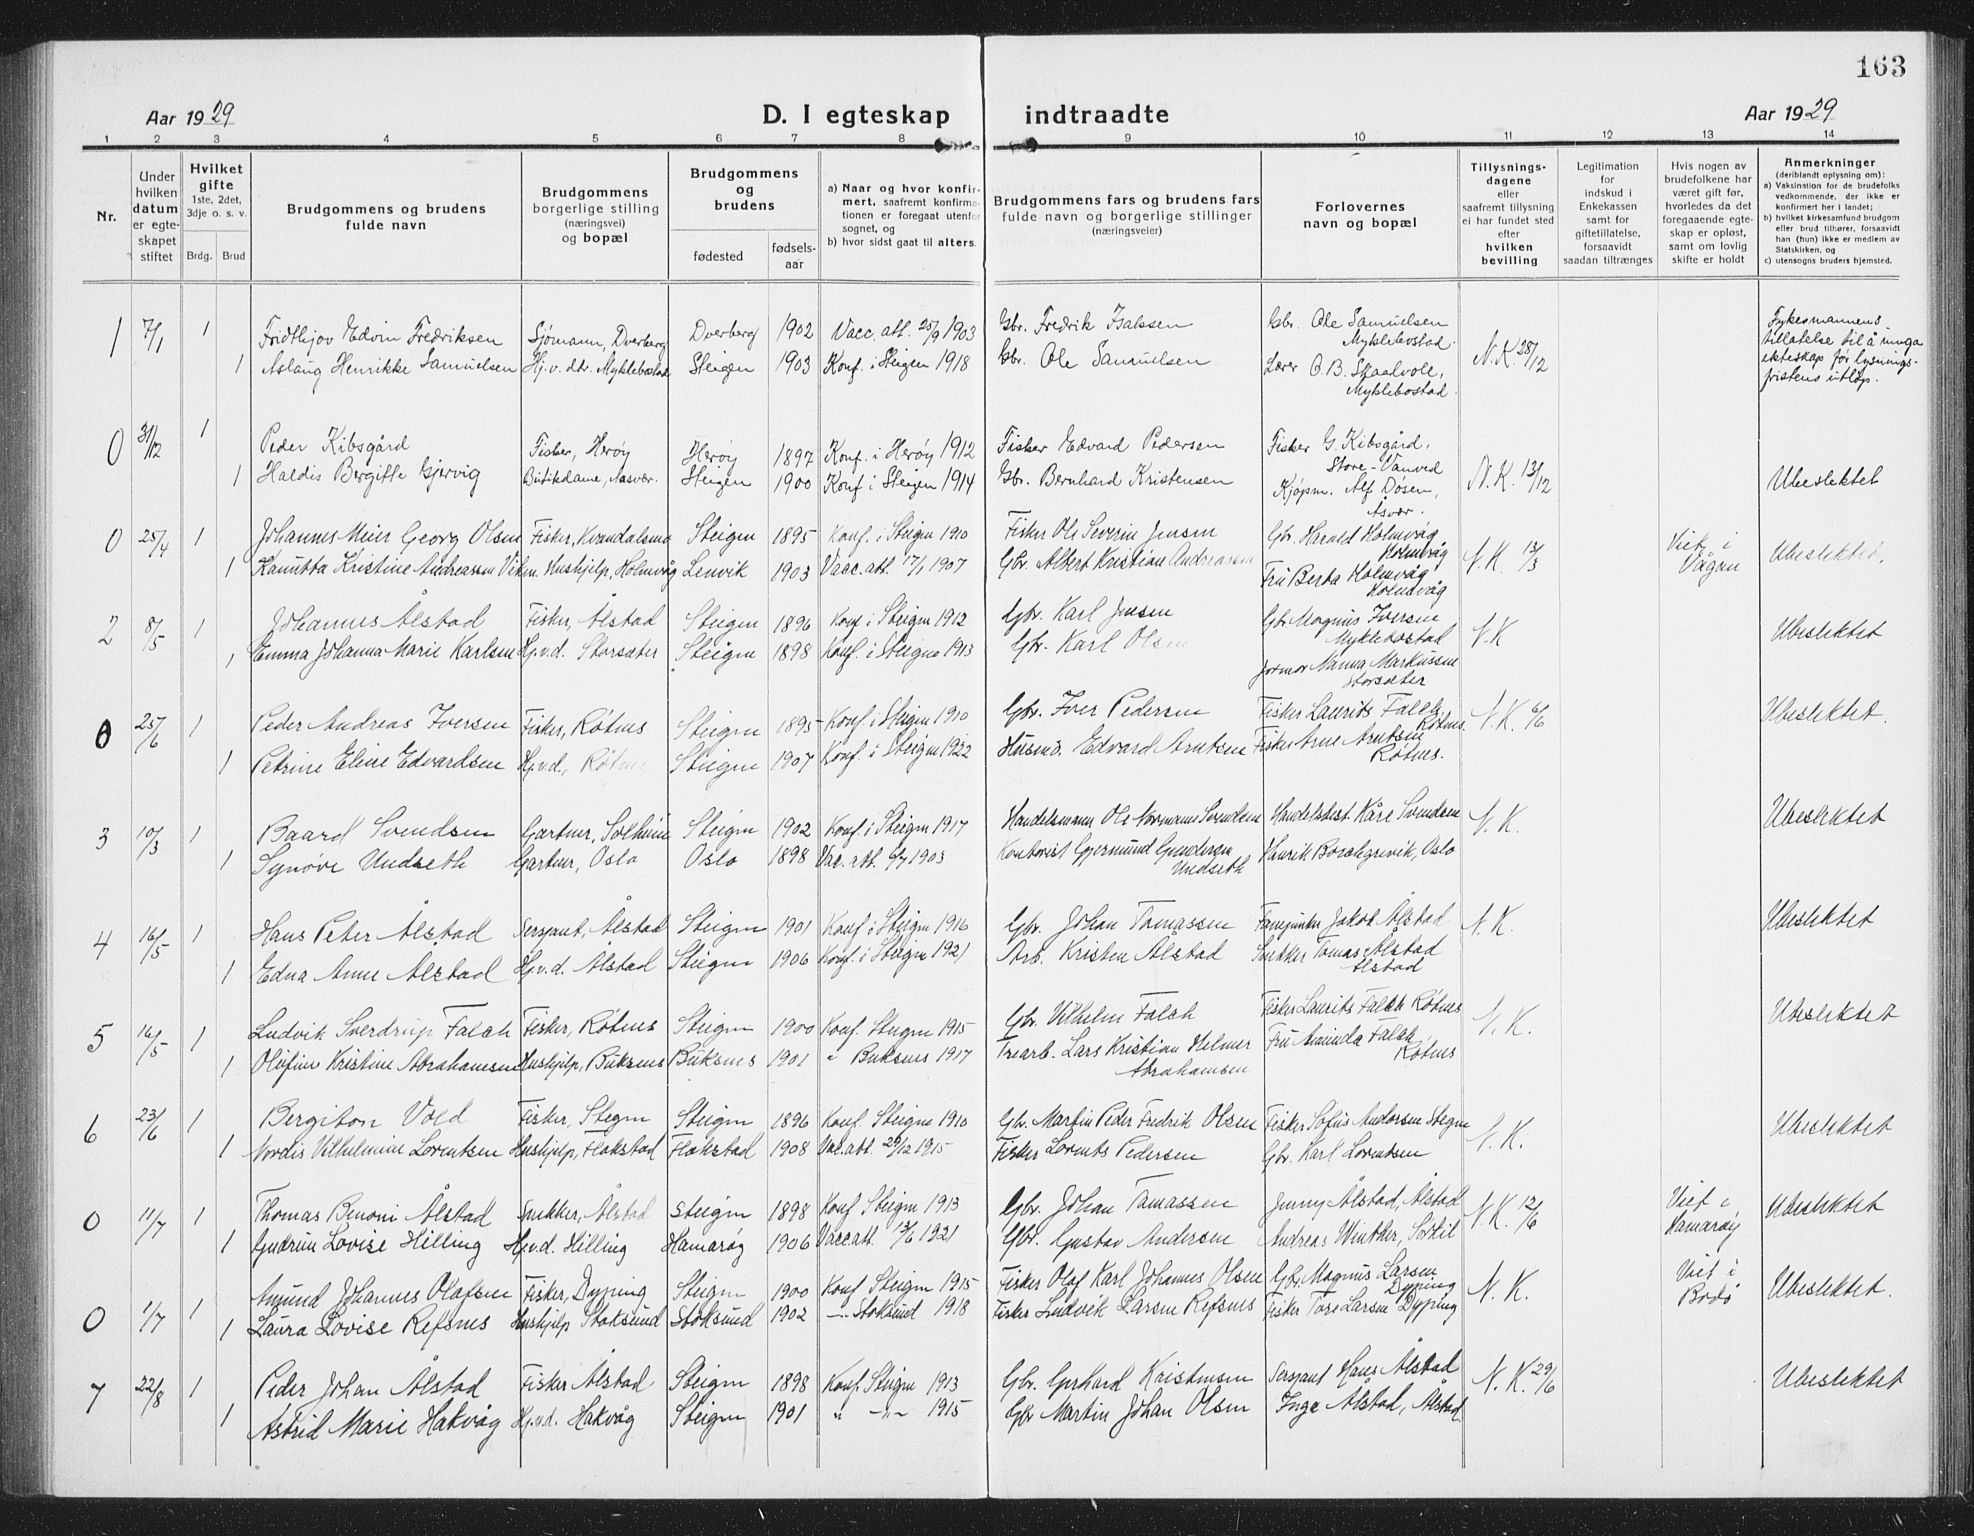 163
Aar 1929
D. I egteskap indtraadte
Aar 1929
1 2 3 4 5 6 7 8 9 10 11 12 13 14
Nr.
Under hvilken datum er egteskapet stiftet
Hvilket gifte 1ste, 2det, 3dje o. s. v.
Brdg. Brud
Brudgommens og brudens fulde navn
Brudgommens borgerlige stilling (næringsvei) og bopæl
Brudgommens og brudens
fødested
fødselsaar
a) Naar og hvor konfirmert, saafremt konfirmationen er foregaat utenfor sognet, og
b) hvor sidst gaat til alters.
Brudgommens fars og brudens fars fulde navn og borgerlige stillinger (næringsveier)
Forlovernes navn og bopæl
Tillysningsdagene eller saafremt tillysning ei har fundet sted efter hvilken bevilling
Legitimation for indskud i Enkekassen samt for giftetillatelse, forsaavidt saadan tiltrænges
Hvis nogen av brudefolkene har været gift før, hvorledes da det foregaaende egteskap er opløst, samt om lovlig skifte er holdt
Anmerkninger (deriblandt oplysning om):
a) Vaksination for de brudefolks vedkommende, der ikke er konfirmert her i landet;
b) hvilket kirkesamfund brudgom eller brud tilhører, forsaavidt han (hun) ikke er medlem av Statskirken, og
c) utensogns bruders hjemsted.
1 7/1 1 Fridtljov Edvin Fredriksen Sjømann, Dverberg Dverberg 1902 Vacc. att. 25/9 1903 Gbr. Fredrik Isakssen Gbr. Ole Samuelsen Myklebostad N.K. 28/12 Fylkesmannens tillatelse til å inngå ekteskap før lysningsfristens utløp.
1 Aslaug Henrikke Samuelsen Hj.v. dtr. Myklebostad Steigen 1903 Konf. i Steigen 1918 Gbr. Ole Samuelsen Lærer O.B. Skaalvole, Myklebostad.
0 31/12 1 Peder Kibsgård Fisker, Herøy Herøy 1897 Konf. i Herøy 1912 Fisker Edvard Pedersen Fisker G. Kibsgård, Store-Vanved N.K. 13/12 Ubeslektet
1 Haldis Bergitte Gjervig Butikdame, Aasvær. Steigen 1900 Konf. i Steigen 1914 Gbr. Bernhard Kristensen Kjøpm. Alf Døsen, Åsvær.
0 25/4 1 Johannes Meier Georg Olsen Fisker, Kvandalsmo Steigen 1895 Konf. i Steigen 1910 Fisker Ole Severin Jensen Gbr. Harald Holmvåg Holmvåg N.K. 13/3 Viet i Vågan Ubeslektet.
1 Kanutta Kristine Andreassen Viken. Hushjelp, Holmvåg Lenvik 1903 Vacc. att. 17/1 1907 Gbr. Albert Kristian Andreassen Fru Berta Holmvåg Holmvåg
2 8/5 1 Johannes Ålstad Fisker, Ålstad Steigen 1896 Konf. i Steigen 1912 Gbr. Karl Jensen Gbr. Magnus Iversen Myklebostad N.K Ubeslektet
1 Emma Johanna Marie Karlsen Hj.v.d. Storsæter Steigen 1898 Konf. i Steigen 1913 Gbr. Karl Olsen Jormor Nanna Markussen Storsæter
0 25/6 1 Peder Andreas Iversen Fisker, Røtnes Steigen 1895 Konf. i Steigen 1910 Gbr. Iver Pedersen Fisker Laurits Falch Røtnes N.K. 6/6 Ubeslektet.
1 Petrine Eline Edvardsen Hj.v.d., Røtnes Steigen 1907 Konf. i Steigen 1922 Husm. Edvard Arntsen Fisker Arne Arntsen Røtnes.
3 10/3 1 Baard Svendsen Gartner, Solheim Steigen 1902 Konf i Steigen 1917 Handelsmann Ole Normann Svendsen Handelsbest. Kåre Svendsen N.K. Ubeslektet
1 Synøve Undseth Gartner, Oslo Oslo 1898 Vac. att. 6/7 1903 Kontorist Gjermund Gundersen Undseth Henrik Borchgrevik, Oslo
4 16/5 1 Hans Peter Ålstad Sersjant, Ålstad Steigen 1901 Konf i Steigen 1916 Gbr. Johan Tomassen Fanejunker Jakob Ålstad N.K. Ubeslektet
1 Edna Anne Ålstad Hj.v.d. Ålstad Steigen 1906 Konf. i Steigen 1921 Arb. Kristen Alstad Snekker Tomas Ålstad Alstad
5 16/5 1 Ludvik Sverdrup Falch Fisker, Røtnes Steigen 1900 Konf. Steigen 1915 Gbr. Vilhelm Falch Fisker Laurits Falch Røtnes N.K. Ubeslektet
1 Olufine Kristine Abrahamsen Hushjelp, Buksnes Buksnes 1901 " Buksnes 1917 Trearb. Lars Kristian Helmer Abrahamsen Fru Aminda Falch Røtnes
6 23/6 1 Bergiton Vold Fisker, Stegen Steigen 1896 Konf. Steigen 1910 Gbr. Martin Peder Fredrik Olsen Fisker Sofus Andersen Stegen N.K. Ubeslektet
1 Nordis Vilhelmine Lorentsen Hushjelp, Flakstad Flakstad 1908 Vac. att. 29/12 1915 Fisker Lorents Pedersen Gbr. Karl Lorentsen
0 11/7 1 Thomas Benoni Ålstad Snekker, Ålstad Steigen 1898 Konf Steigen 1913 Gbr. Johan Tomassen Jenny Ålstad, Ålstad N.K. 12/6 Viet i Hamarøy Ubeslektet
1 Gudrun Lovise Hilling Hj.v.d. Hilling Hamarøy 1906 Vacc att. 13/6 1921 Gbr. Gustav Andersen Andreas Winther, Sørkil
0 1/7 1 Amund Johannes Olafsen Fisker, Dyping Steigen 1900 Konf Steigen 1915 Fisker Olaf Karl Johannes Olsen Gbr. Magnus Larsen Dyping N.K. Viet i Bodø Ubeslektet.
1 Laura Lovise Refsnes Hushjelp Stoksund Stoksund 1902 -"- Stoksund 1918 Fisker Ludvik Larsen Refsnes Fisker Tore Larsen Dyping
7 22/8 1 Peder Johan Ålstad Fisker Ålstad Steigen 1898 Konf. Steigen 1913 Gbr. Gerhard Kristensen Sersjant Hans Ålstad N.K. 29/6 Ubeslektet
1 Astrid Marie Hakvåg Hj.v.d. Hakvåg Steigen 1901 " -"- 1915 Gbr Martin Johan Olsen Inga Ålstad, Ålstad.